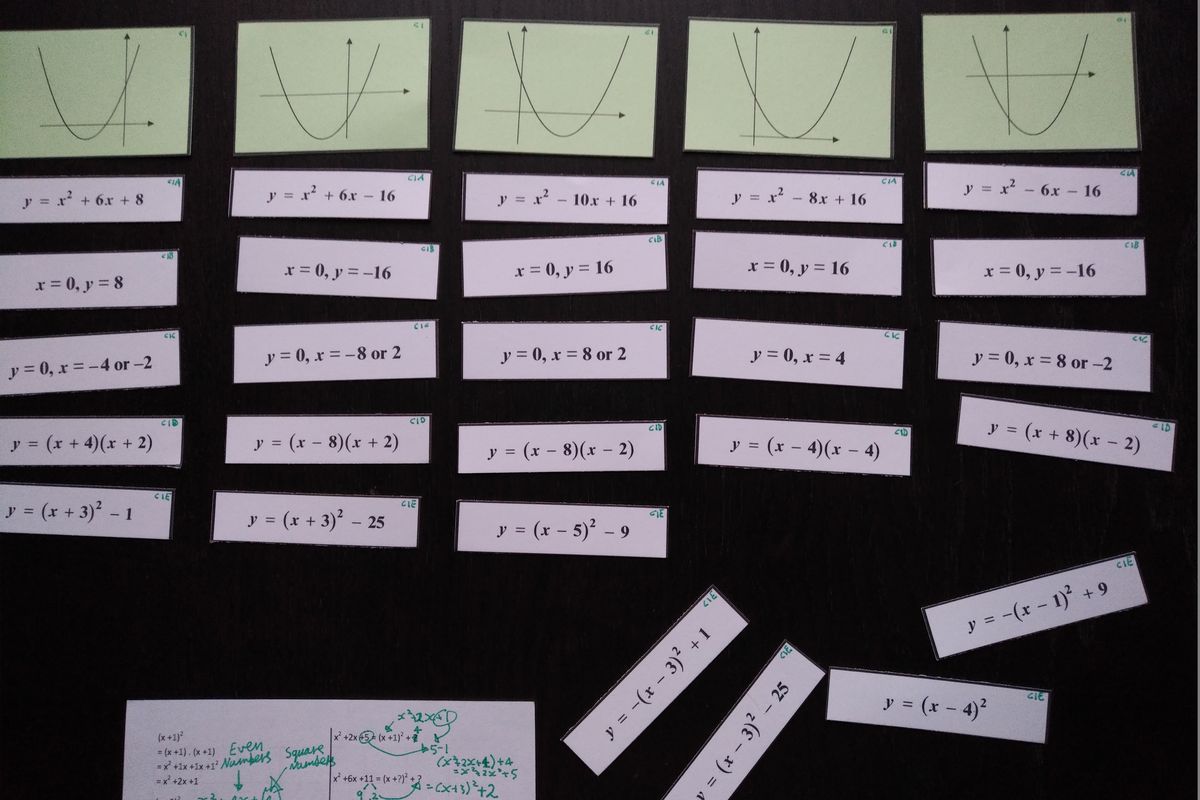 C1
C1
C1
C1
C1
C1A
y = x² + 6x + 8
C1A
y = x² + 6x − 16
C1A
y = x² − 10x + 16
C1A
y = x² − 8x + 16
C1A
y = x² − 6x − 16
C1B
x = 0, y = 8
C1B
x = 0, y = −16
C1B
x = 0, y = 16
C1B
x = 0, y = 16
C1B
x = 0, y = −16
C1C
y = 0, x = −4 or −2
C1C
y = 0, x = −8 or 2
C1C
y = 0, x = 8 or 2
C1C
y = 0, x = 4
C1C
y = 0, x = 8 or −2
C1D
y = (x + 4)(x + 2)
C1D
y = (x − 8)(x + 2)
C1D
y = (x − 8)(x − 2)
C1D
y = (x − 4)(x − 4)
C1D
y = (x + 8)(x − 2)
C1E
y = (x + 3)² − 1
C1E
y = (x + 3)² − 25
C1E
y = (x − 5)² − 9
C1E
y = −(x − 1)² + 9
C1E
y = −(x − 3)² + 1
C1E
y = (x − 3)² − 25
C1E
y = (x − 4)²
(x +1)²
= (x +1) . (x +1)
= x² +1x +1x +1²
= x² +2x +1
Even
Numbers
Square
Numbers
x² +2x +5 = (x +1)² +
4
5-1
(x²+2x+1)+4
= x²+2x+5
x² +6x +11 = (x +?)² + ?
9 2
= (x+3)²+2